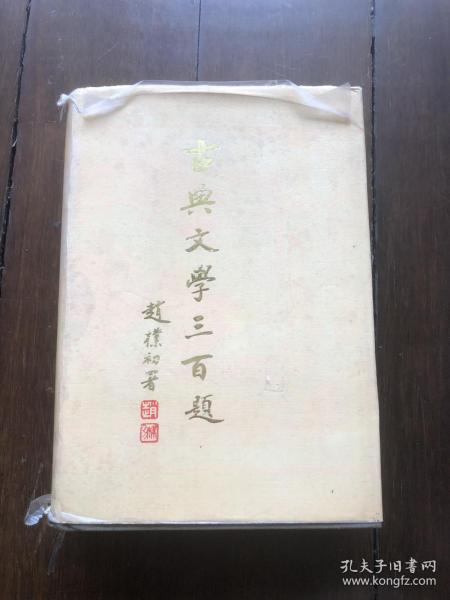 古典文學三百題
趙樸初署
趙
孔夫子旧书网
www.kongfz.com